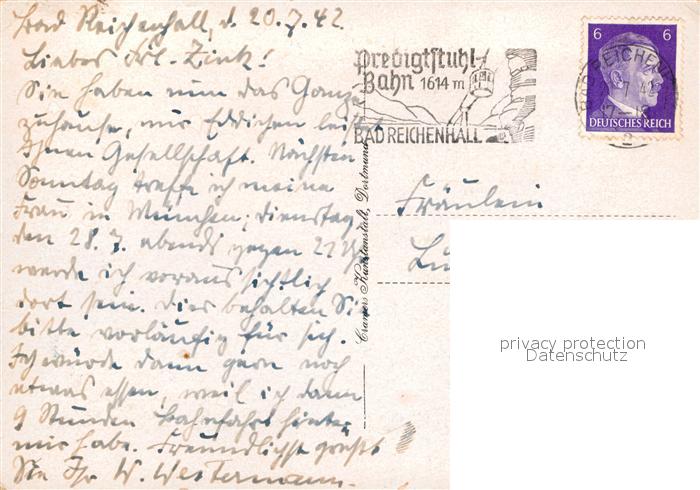 Bad Reichenhall, d. 20.7.42.
Liebes Frl. Zink!
Sie haben nun das Ganze
zuhause, nur Eddichen leistet
Ihnen Gesellschaft. Nächsten
Sonntag treffe ich meine
Frau in München; Dienstag
den 28.7. abends gegen 21 Uhr
werde ich voraussichtlich
dort sein. Dies behalten Sie
bitte vorläufig für sich.
Ich würde dann gern noch
etwas essen, weil ich dann
9 Stunden Bahnfahrt hinter
mir habe. Freundlichst grüsst
Sie Ihr W. Westermann.
Predigtstuhl-
Bahn 1614 m
BAD REICHENHALL
BAD REICHENHALL
2
6 6
DEUTSCHES REICH
Cramers Kunstanstalt, Dortmund
Fräulein
privacy protection
Datenschutz